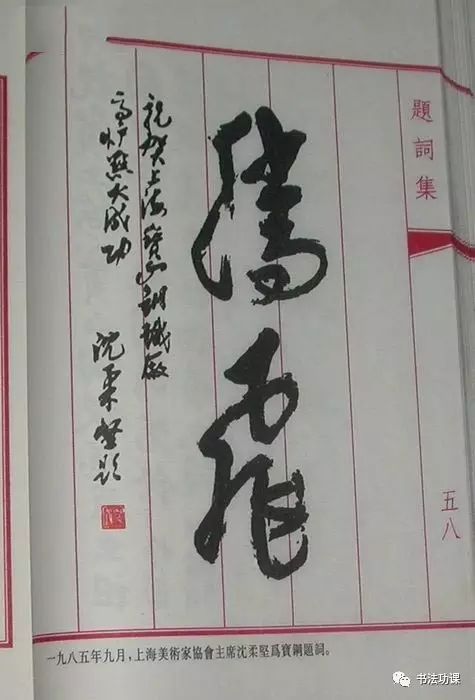 題詞集
五八
騰飛
祝贺上海寶山钢鐵廠
高炉點火成功
沈柔堅題
一九八五年九月，上海美術家協會主席沈柔堅爲寶鋼題詞。
书法功课